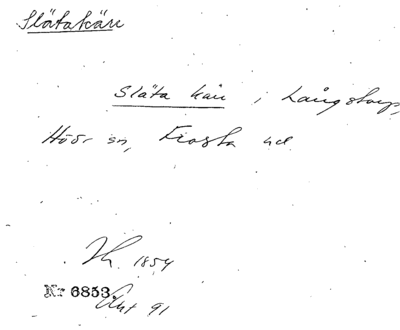 Slätakärr
Släta kärr i Långstorp,
Höör sn, Frosta hd
1854
Nr 6853.
Akt 91